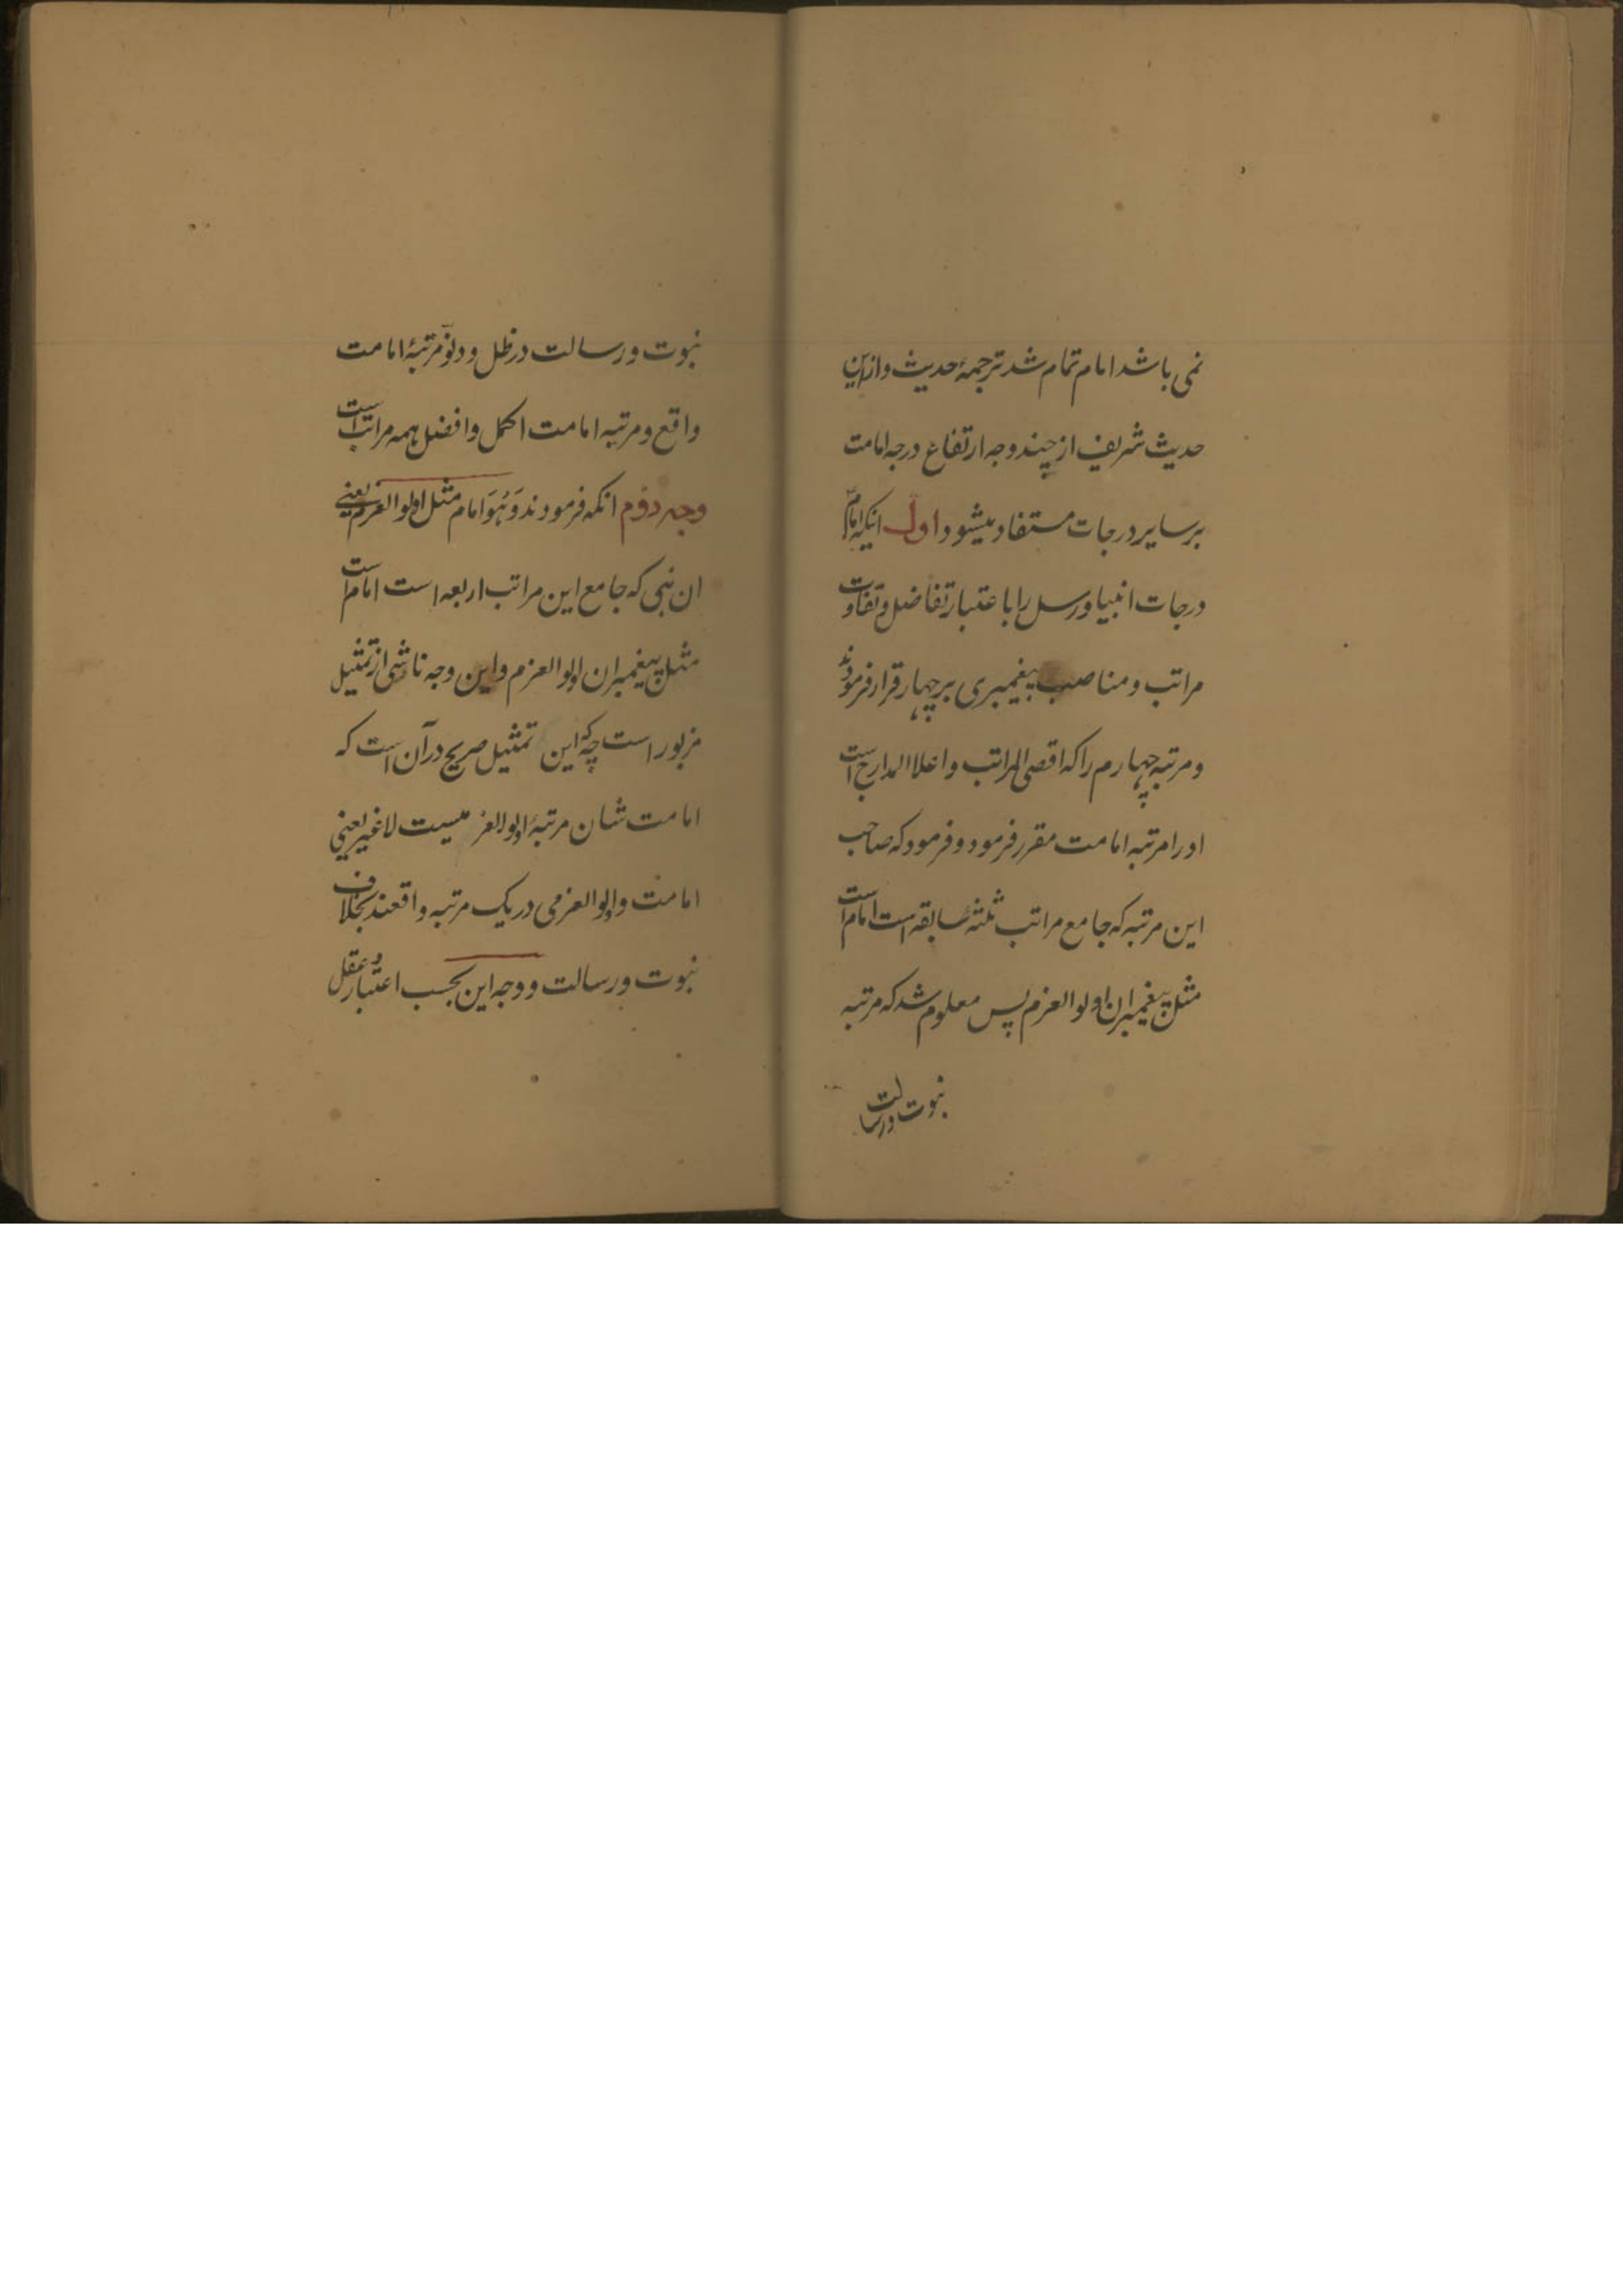 نمی باشد امام تمام شد ترجمهٔ حدیث و از این
حدیث شریف از چند وجه ارتفاع درجه امامت
بر سایر درجات مستفاد میشود اول انیکه امامؑ
درجات انبیا و رسل را باعتبار تفاضل و تفاوت
مراتب و مناصب پیغمبری بر چهار قرار فرمودند
و مرتبه چهارم را که اقصی المراتب و اعلا المدارج است
او را مرتبه امامت مقرر فرمود و فرمود که صاحب
این مرتبه که جامع مراتب ثلثهٔ سابقه است امام است
مثل پیغمبران اولو العزم پس معلوم شد که مرتبه
نبوت و رسالت
نبوت و رسالت در ظل و دنوّ مرتبهٔ امامت
واقع و مرتبه امامت اکمل و افضل همه مراتب است
وجه دوم انکه فرمودند وَهُوَ امام مثل اولو العزم یعنی
ان نبی که جامع این مراتب اربعه است امام است
مثل پیغمبران اولو العزم و این وجه ناشی از تمثیل
مزبور است چه که این تمثیل صریح در آن است که
امامت شان مرتبهٔ اولو العزمیست لاغیر یعنی
امامت و اولو العزمی در یک مرتبه واقعند بخلاف
نبوت و رسالت و وجه این بحسب اعتبار و عقل